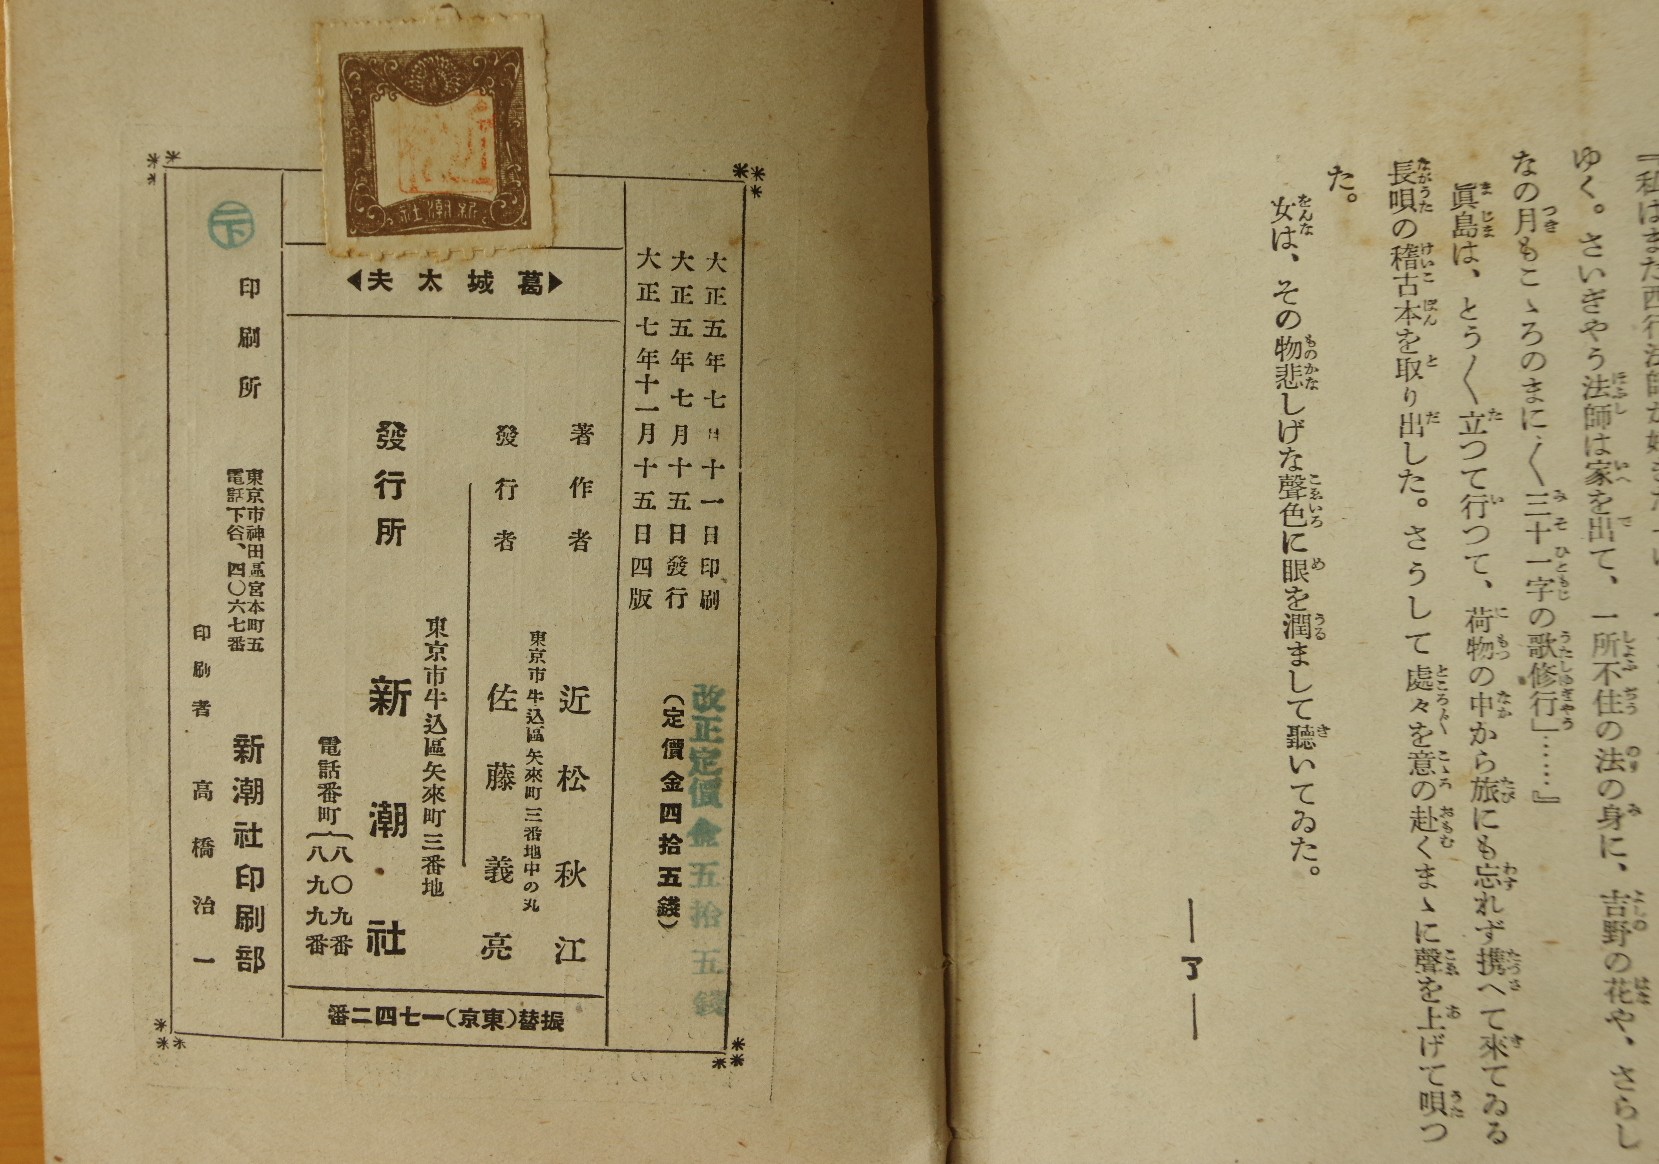 ゆく。さいぎやう法師は家を出て、一所不住の法の身に、吉野の花や、さらし
なの月もこゝろのまに〱三十一字の歌修行」……』
眞島は、とう〱立つて行つて、荷物の中から旅にも忘れず携へて來てゐる
長唄の稽古本を取り出した。さうして處々を意の赴くまゝに聲を上げて唄つ
た。
女は、その物悲しげな聲色に眼を潤まして聽いてゐた。
―了―
大正五年七月十一日印刷
大正五年七月十五日發行
大正七年十一月十五日四版
改正定價金五拾五錢
(定價金四拾五錢)
新潮社
葛城太夫
著作者 近松秋江
東京市牛込區矢來町三番地中の丸
發行者 佐藤義亮
東京市牛込區矢來町三番地
發行所 新潮社
電話番町(八〇九番
八九九番
振替(東京)一七四二番
印刷所 新潮社印刷部
東京市神田區宮本町五
電話下谷、四〇六七番
印刷者 高橋治一